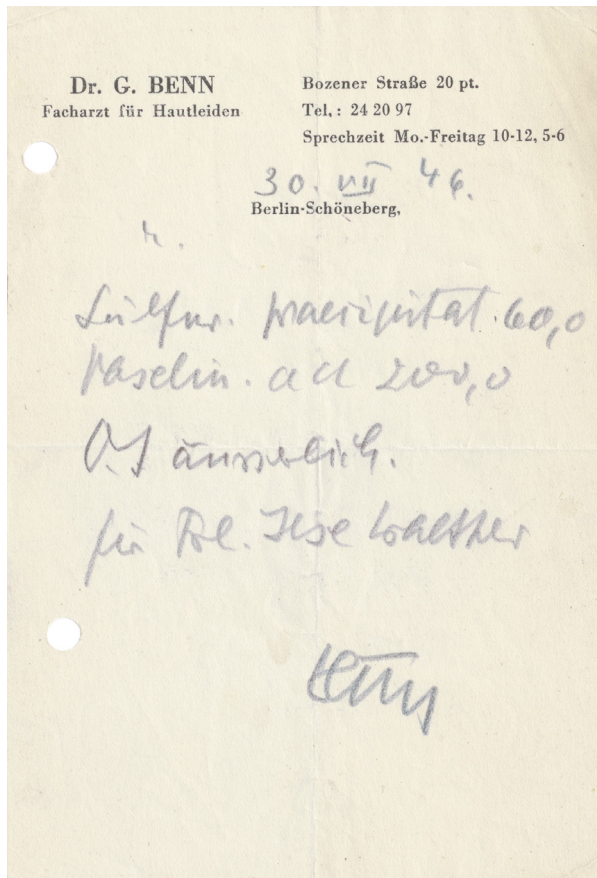 Dr. G. BENN
Facharzt für Hautleiden
Bozener Straße 20 pt.
Tel.: 24 20 97
Sprechzeit Mo.-Freitag 10-12, 5-6
30. VII 46.
Berlin-Schöneberg,
Sulfur. praecipitat. 60,0
Vaselin. ad 200,0
äusserlich.
für Frl. Ilse Walther
Benn